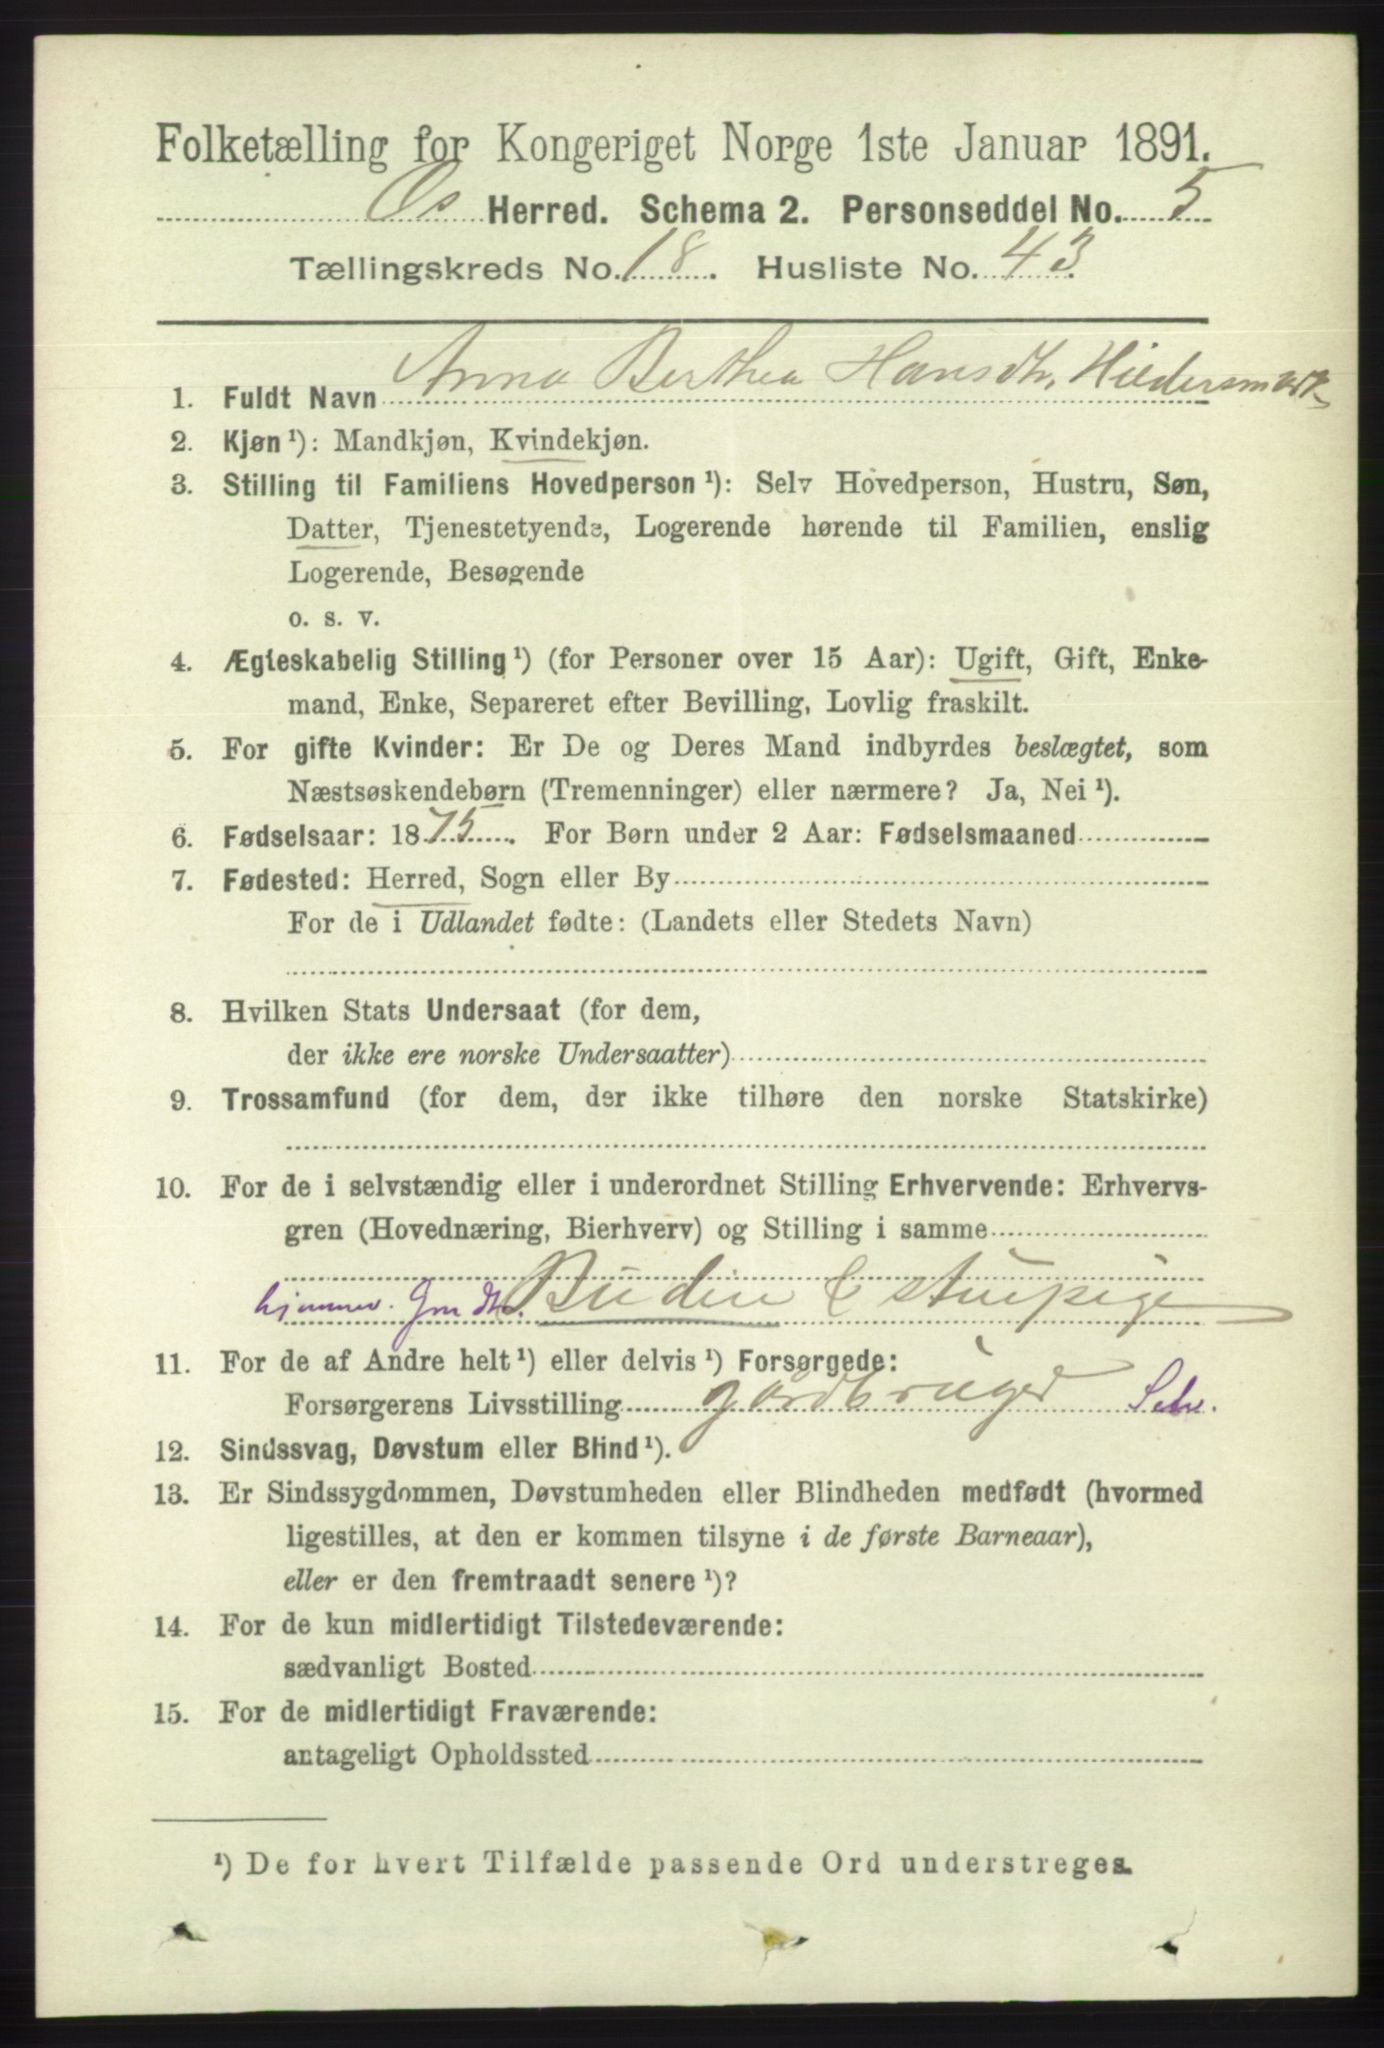 Folketælling for Kongeriget Norge 1ste Januar 1891.
Os Herred. Schema 2. Personseddel No. 5
Tællingskreds No. 18. Husliste No. 43.
1. Fuldt Navn Anna Berthea Hansdtr. Hiedersmark
2. Kjøn ¹): Mandkjøn, Kvindekjøn.
3. Stilling til Familiens Hovedperson ¹): Selv Hovedperson, Hustru, Søn,
Datter, Tjenestetyende, Logerende hørende til Familien, enslig
Logerende, Besøgende
o. s. v.
4. Ægteskabelig Stilling ¹) (for Personer over 15 Aar): Ugift, Gift, Enke-
mand, Enke, Separeret efter Bevilling, Lovlig fraskilt.
5. For gifte Kvinder: Er De og Deres Mand indbyrdes beslægtet, som
Næstsøskendebørn (Tremenninger) eller nærmere? Ja, Nei ¹).
6. Fødselsaar: 1875. For Børn under 2 Aar: Fødselsmaaned
7. Fødested: Herred, Sogn eller By
For de i Udlandet fødte: (Landets eller Stedets Navn)
8. Hvilken Stats Undersaat (for dem,
der ikke ere norske Undersaatter)
9. Trossamfund (for dem, der ikke tilhøre den norske Statskirke)
10. For de i selvstændig eller i underordnet Stilling Erhvervende: Erhvervs-
gren (Hovednæring, Bierhverv) og Stilling i samme
hjemmev. Gm dtr. Budeie & stuepige
11. For de af Andre helt ¹) eller delvis ¹) Forsørgede:
Forsørgerens Livsstilling gårdbruger Selv.
12. Sindssvag, Døvstum eller Blind ¹).
13. Er Sindssygdommen, Døvstumheden eller Blindheden medfødt (hvormed
ligestilles, at den er kommen tilsyne i de første Barneaar),
eller er den fremtraadt senere ¹)?
14. For de kun midlertidigt Tilstedeværende:
sædvanligt Bosted
15. For de midlertidigt Fraværende:
antageligt Opholdssted
¹) De for hvert Tilfælde passende Ord understreges.